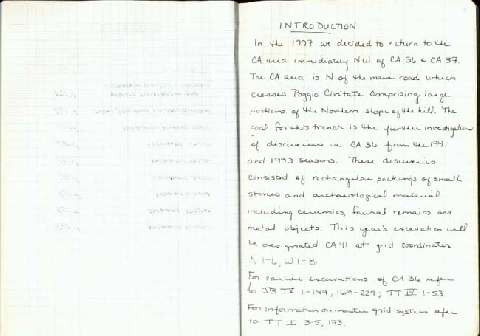 INTRODUCTION
In the 1997 we decided to return to the
CA area immediately NW of CA 36 & CA 37.
The CA area is N of the main road which
crosses Poggio Civitate comprising large
portions of the Northern slope of the hill. The
goal for this trench is the further investigation
of discoveries in CA 36 from the
and 1993 seasons. These discoveries
consisted of rectangular packings of small
stones and archaeological material
including ceramics, faunal remains and
metal objects. This year's excavation will
be designated CA 41 at grid coordinates
For earlier excavations of CA 36 refer
to JB 1-149, 169-229; TT IV 1-53
For information on master grid system refer
to TT I 3-5, 173.